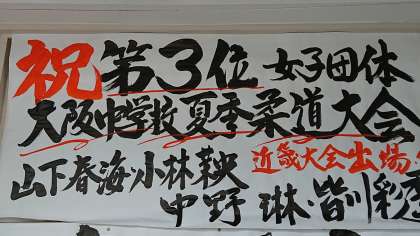 祝 第3位 女子団体
大阪中学校夏季柔道大会
近畿大会出場
山下春海・小林鞅
中野 琳・皆川彩